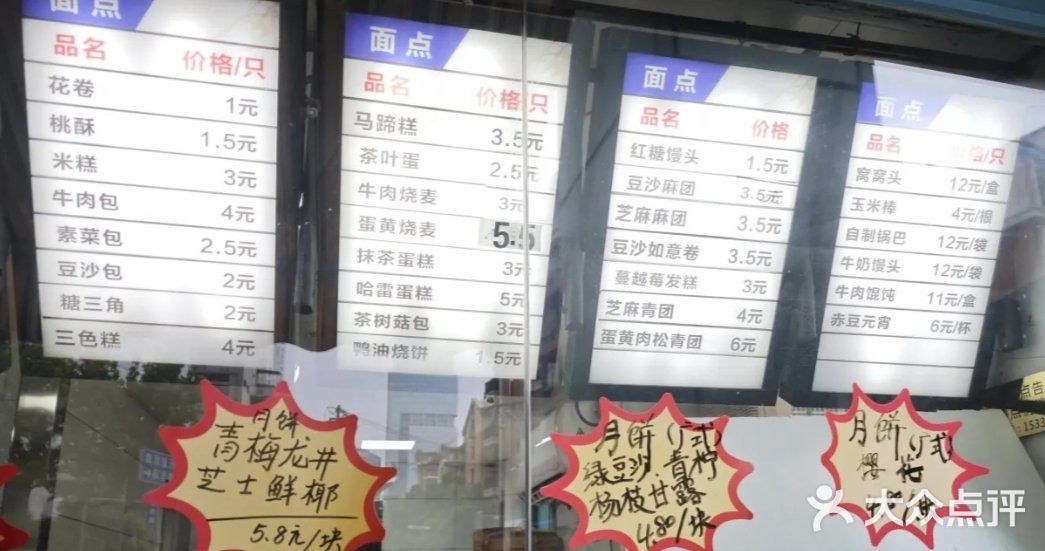 面点
品名 价格/只
花卷 1元
桃酥 1.5元
米糕 3元
牛肉包 4元
素菜包 2.5元
豆沙包 2元
糖三角 2元
三色糕 4元
面点
品名 价格/只
马蹄糕 3.5元
茶叶蛋 2.5元
牛肉烧麦 3元
蛋黄烧麦 5.5
抹茶蛋糕 3元
哈雷蛋糕 5元
茶树菇包 3元
鸭油烧饼 1.5元
面点
品名 价格
红糖馒头 1.5元
豆沙麻团 3.5元
芝麻麻团 3.5元
豆沙如意卷 3.5元
蔓越莓发糕 3元
芝麻青团 4元
蛋黄肉松青团 6元
面点
品名 价格/只
窝窝头 12元/盒
玉米棒 4元/根
自制锅巴 12元/袋
牛奶馒头 12元/袋
牛肉馄饨 11元/盒
赤豆元宵 6元/杯
月饼
青梅龙井
芝士鲜椰
5.8元/块
月饼(广式)
绿豆沙 青柠
杨枝甘露
4.80/块
月饼(广式)
樱花
点告
1533
大众点评